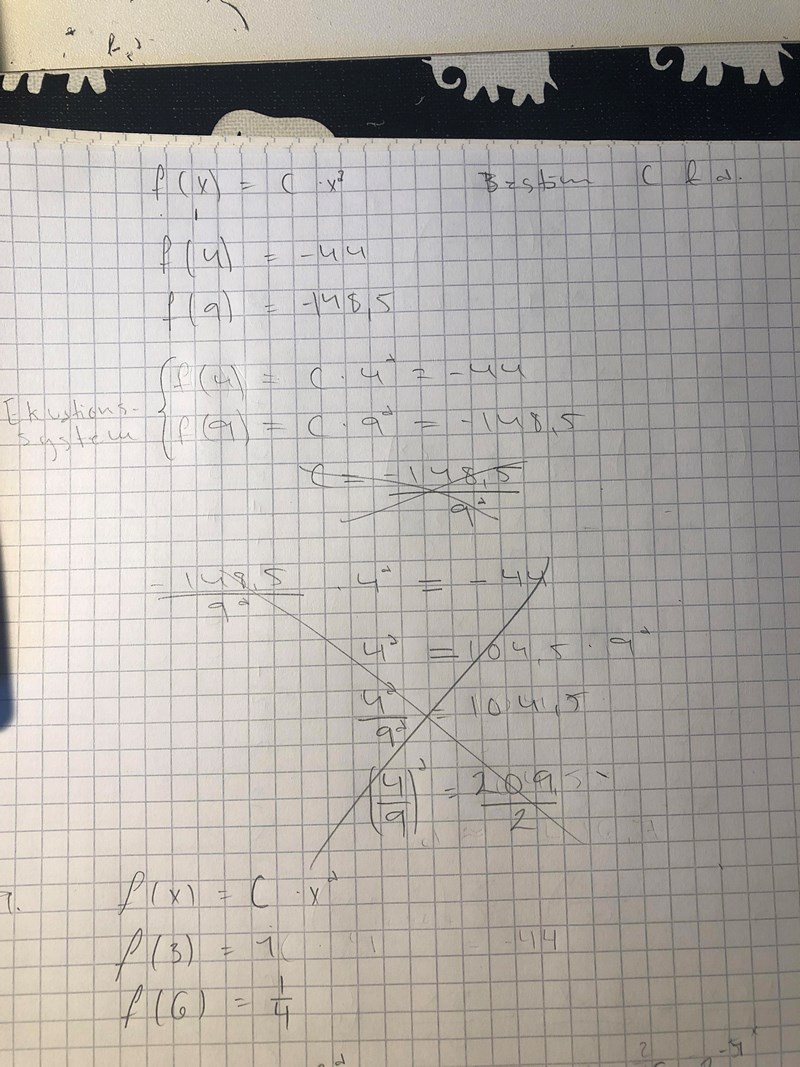 f(x) = C · x^a    Bestäm C & a.
f(4) = -44
f(9) = -148,5
Ekvations-
system
f(4) = C · 4^a = -44
f(9) = C · 9^a = -148,5
C = -148,5 / 9^a
-148,5 / 9^a · 4^a = -44
4^a = 104,5 · 9^a
4^a / 9^a = 104,5
(4/9)^a = 209 / 2
f(x) = C · x^a
f(3) = 1
-44
f(6) = 1/4